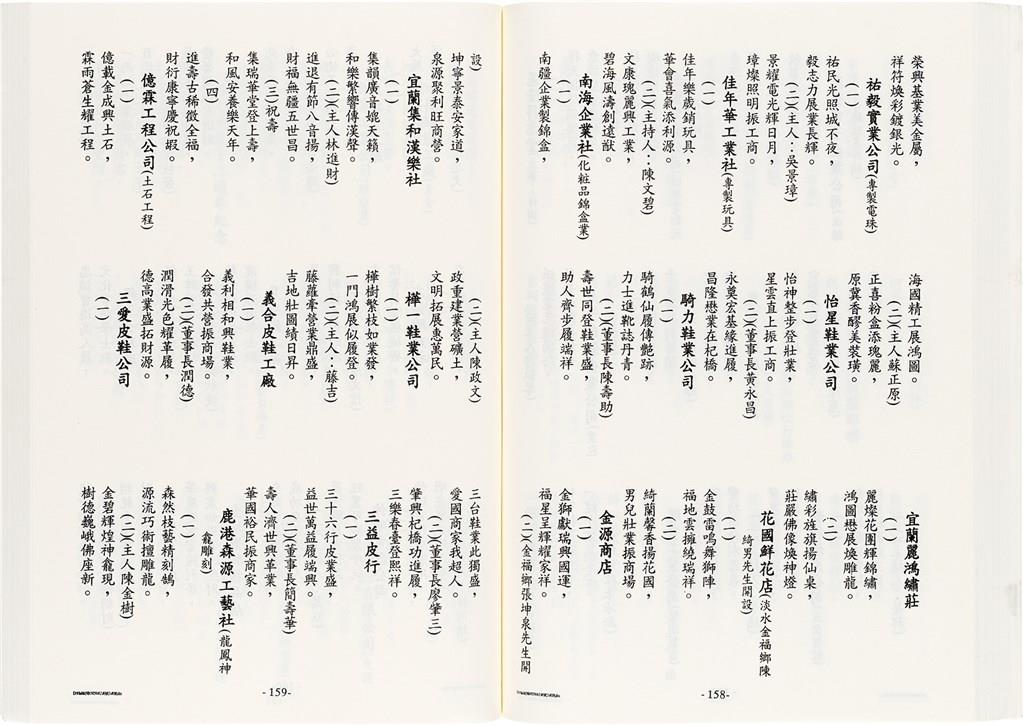 榮興基業美金屬，
祥符煥彩鍍銀光。
祐毅實業公司(專製電珠)
(一)
祐民光照城不夜，
毅志力展業長輝。
(二)(主人：吳景璋)
景耀電光輝日月，
璋燦照明振工商。
佳年華工業社(專製玩具)
(一)
佳年樂歲銷玩具，
華會喜氣添利源。
(二)(主持人：陳文碧)
文康瑰麗興工業，
碧海風濤創遠猷。
南海企業社(化粧品錦盒業)
(一)
南疆企業製錦盒，
海國精工展鴻圖。
(二)(主人蘇正原)
正喜粉盒添瑰麗，
原冀香醪美裝璜。
怡星鞋業公司
(一)
怡神整步登壯業，
星雲直上振工商。
(二)(董事長黃永昌)
永奠宏基緣進履，
昌隆懋業在杞橋。
騎力鞋業公司
(一)
騎鶴仙履傳艷跡，
力士進靴誌丹青。
(二)(董事長陳壽助)
壽世同登鞋業盛，
助人齊步履端祥。
宜蘭麗鴻繡莊
(一)
麗燦花團輝錦繡，
鴻圖懋展煥雕龍。
(二)
繡彩旌旗揚仙桌，
莊嚴佛像煥神燈。
花國鮮花店(淡水金福鄉陳
綺男先生開設)
(一)
金鼓雷鳴舞獅陣，
福地雲擁繞瑞祥。
(二)
綺蘭馨香揚花國，
男兒壯業振商場。
金源商店
(一)
金獅獻瑞興國運，
福星呈輝耀家祥。
(二)(金福鄉張坤泉先生開
-158-
設)
坤寧景泰安家道，
泉源聚利旺商營。
宜蘭集和漢樂社
(一)
集韻廣音媲天籟，
和樂繁響傳漢聲。
(二)(主人林進財)
進退有節八音揚，
財福無疆五世昌。
(三)祝壽
集瑞華堂登上壽，
和風安養樂天年。
(四)
進壽古稀徵全福，
財衍康寧慶祝嘏。
億霖工程公司(土石工程)
(一)
億載金成興土石，
霖雨蒼生耀工程。
(二)(主人陳政文)
政重建業營礦土，
文明拓展惠萬民。
樺一鞋業公司
(一)
樺樹繁枝如業發，
一門鴻展似履登。
(二)(主人：藤吉)
藤蘿牽營業鼎盛，
吉地壯圖績日昇。
義合皮鞋工廠
(一)
義利相和興鞋業，
合發共營振商場。
(二)(董事長潤德)
潤滑光色耀革履，
德高業盛拓財源。
三愛皮鞋公司
(一)
三台鞋業此獨盛，
愛國商家我超人。
(二)(董事長廖肇三)
肇興杞橋功進履，
三樂春臺登熙祥。
三益皮行
(一)
三十六行皮業盛，
益世萬益履端興。
(二)(董事長簡壽華)
壽人濟世興革業，
華國裕民振商家。
鹿港森源工藝社(龍鳳神
龕雕刻)
(一)
森然枝藝精刻鵠，
源流巧術擅雕龍。
(二)(主人陳金樹)
金碧輝煌神龕現，
樹德巍峨佛座新。
-159-